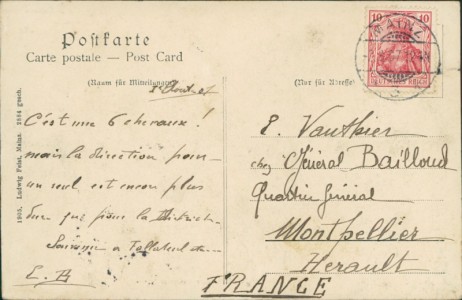 Postkarte
Carte postale — Post Card
(Raum für Mitteilungen)
C'est une 6 chevaux!
mais la direction pour
un seul, est encore plus
que pour la
Souvenir
E. B
1905. Ludwig Feist, Mainz. 3684 gesch.
10 10
DEUTSCHES REICH
MAINZ
(Nur für Adresse)
E. Vauthier
chez Général Bailloud
Quartier Général
Montpellier
Herault
FRANCE